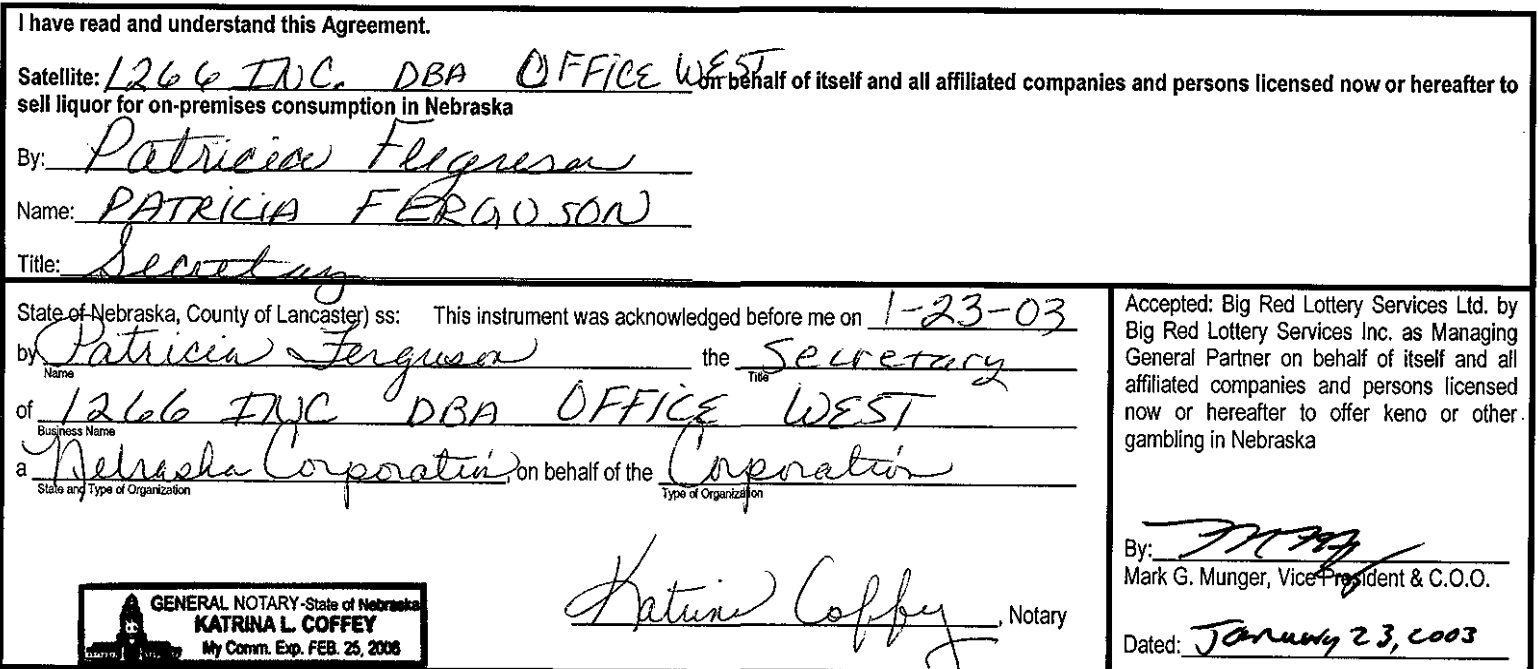 I have read and understand this Agreement.
Satellite: 1266 INC. DBA OFFICE WEST on behalf of itself and all affiliated companies and persons licensed now or hereafter to
sell liquor for on-premises consumption in Nebraska
By: Patricia Ferguson
Name: PATRICIA FERGUSON
Title: Secretary
State of Nebraska, County of Lancaster) ss: This instrument was acknowledged before me on 1-23-03
by Patricia Ferguson the Secretary
Name Title
of 1266 INC DBA OFFICE WEST
Business Name
a Nebraska Corporation, on behalf of the Corporation
State and Type of Organization Type of Organization
Katrina Coffey, Notary
GENERAL NOTARY-State of Nebraska
KATRINA L. COFFEY
My Comm. Exp. FEB. 25, 2006
Accepted: Big Red Lottery Services Ltd. by
Big Red Lottery Services Inc. as Managing
General Partner on behalf of itself and all
affiliated companies and persons licensed
now or hereafter to offer keno or other
gambling in Nebraska
By:
Mark G. Munger, Vice President & C.O.O.
Dated: January 23, 2003